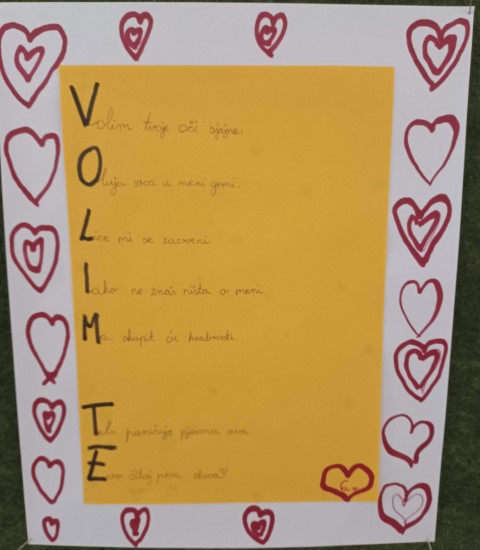 Volim tvoje oči sjajne.
Oluja srca u meni grmi.
Lice mi se zacrveni.
Iako ne znaš ništa o meni
Ma, skupit ću hrabrosti.
Tebi poručuje pjesma ova
Evo, čitaj prva slova?